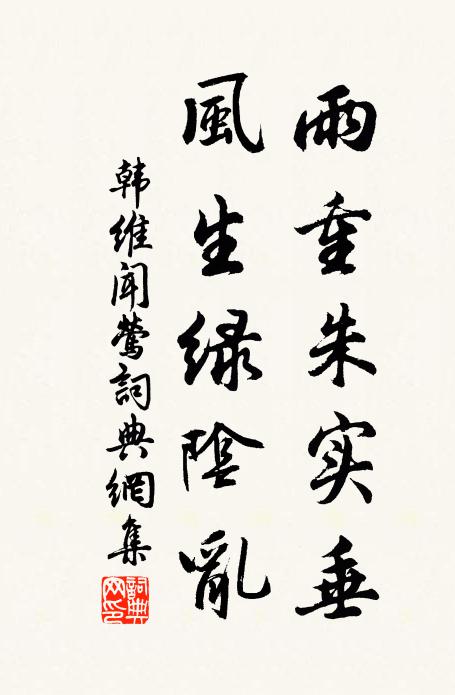 雨重朱实垂
風生绿陰亂
韩維闻鶯詞典網集
詞典
网印